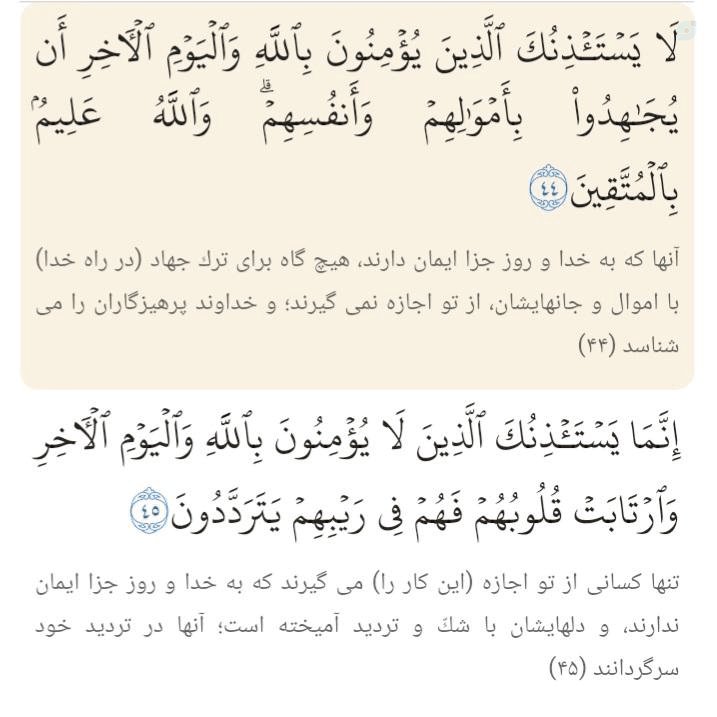 لَا يَسۡتَـٔۡذِنُكَ ٱلَّذِينَ يُؤۡمِنُونَ بِٱللَّهِ وَٱلۡيَوۡمِ ٱلۡأٓخِرِ أَن
يُجَٰهِدُواْ بِأَمۡوَٰلِهِمۡ وَأَنفُسِهِمۡۗ وَٱللَّهُ عَلِيمُۢ
بِٱلۡمُتَّقِينَ ٤٤
آنها که به خدا و روز جزا ایمان دارند، هیچ گاه برای ترك جهاد (در راه خدا)
با اموال و جانهایشان، از تو اجازه نمی گیرند؛ و خداوند پرهیزگاران را می
شناسد (۴۴)
إِنَّمَا يَسۡتَـٔۡذِنُكَ ٱلَّذِينَ لَا يُؤۡمِنُونَ بِٱللَّهِ وَٱلۡيَوۡمِ ٱلۡأٓخِرِ
وَٱرۡتَابَتۡ قُلُوبُهُمۡ فَهُمۡ فِي رَيۡبِهِمۡ يَتَرَدَّدُونَ ٤٥
تنها کسانی از تو اجازه (این کار را) می گیرند که به خدا و روز جزا ایمان
ندارند، و دلهایشان با شكّ و تردید آمیخته است؛ آنها در تردید خود
سرگردانند (۴۵)